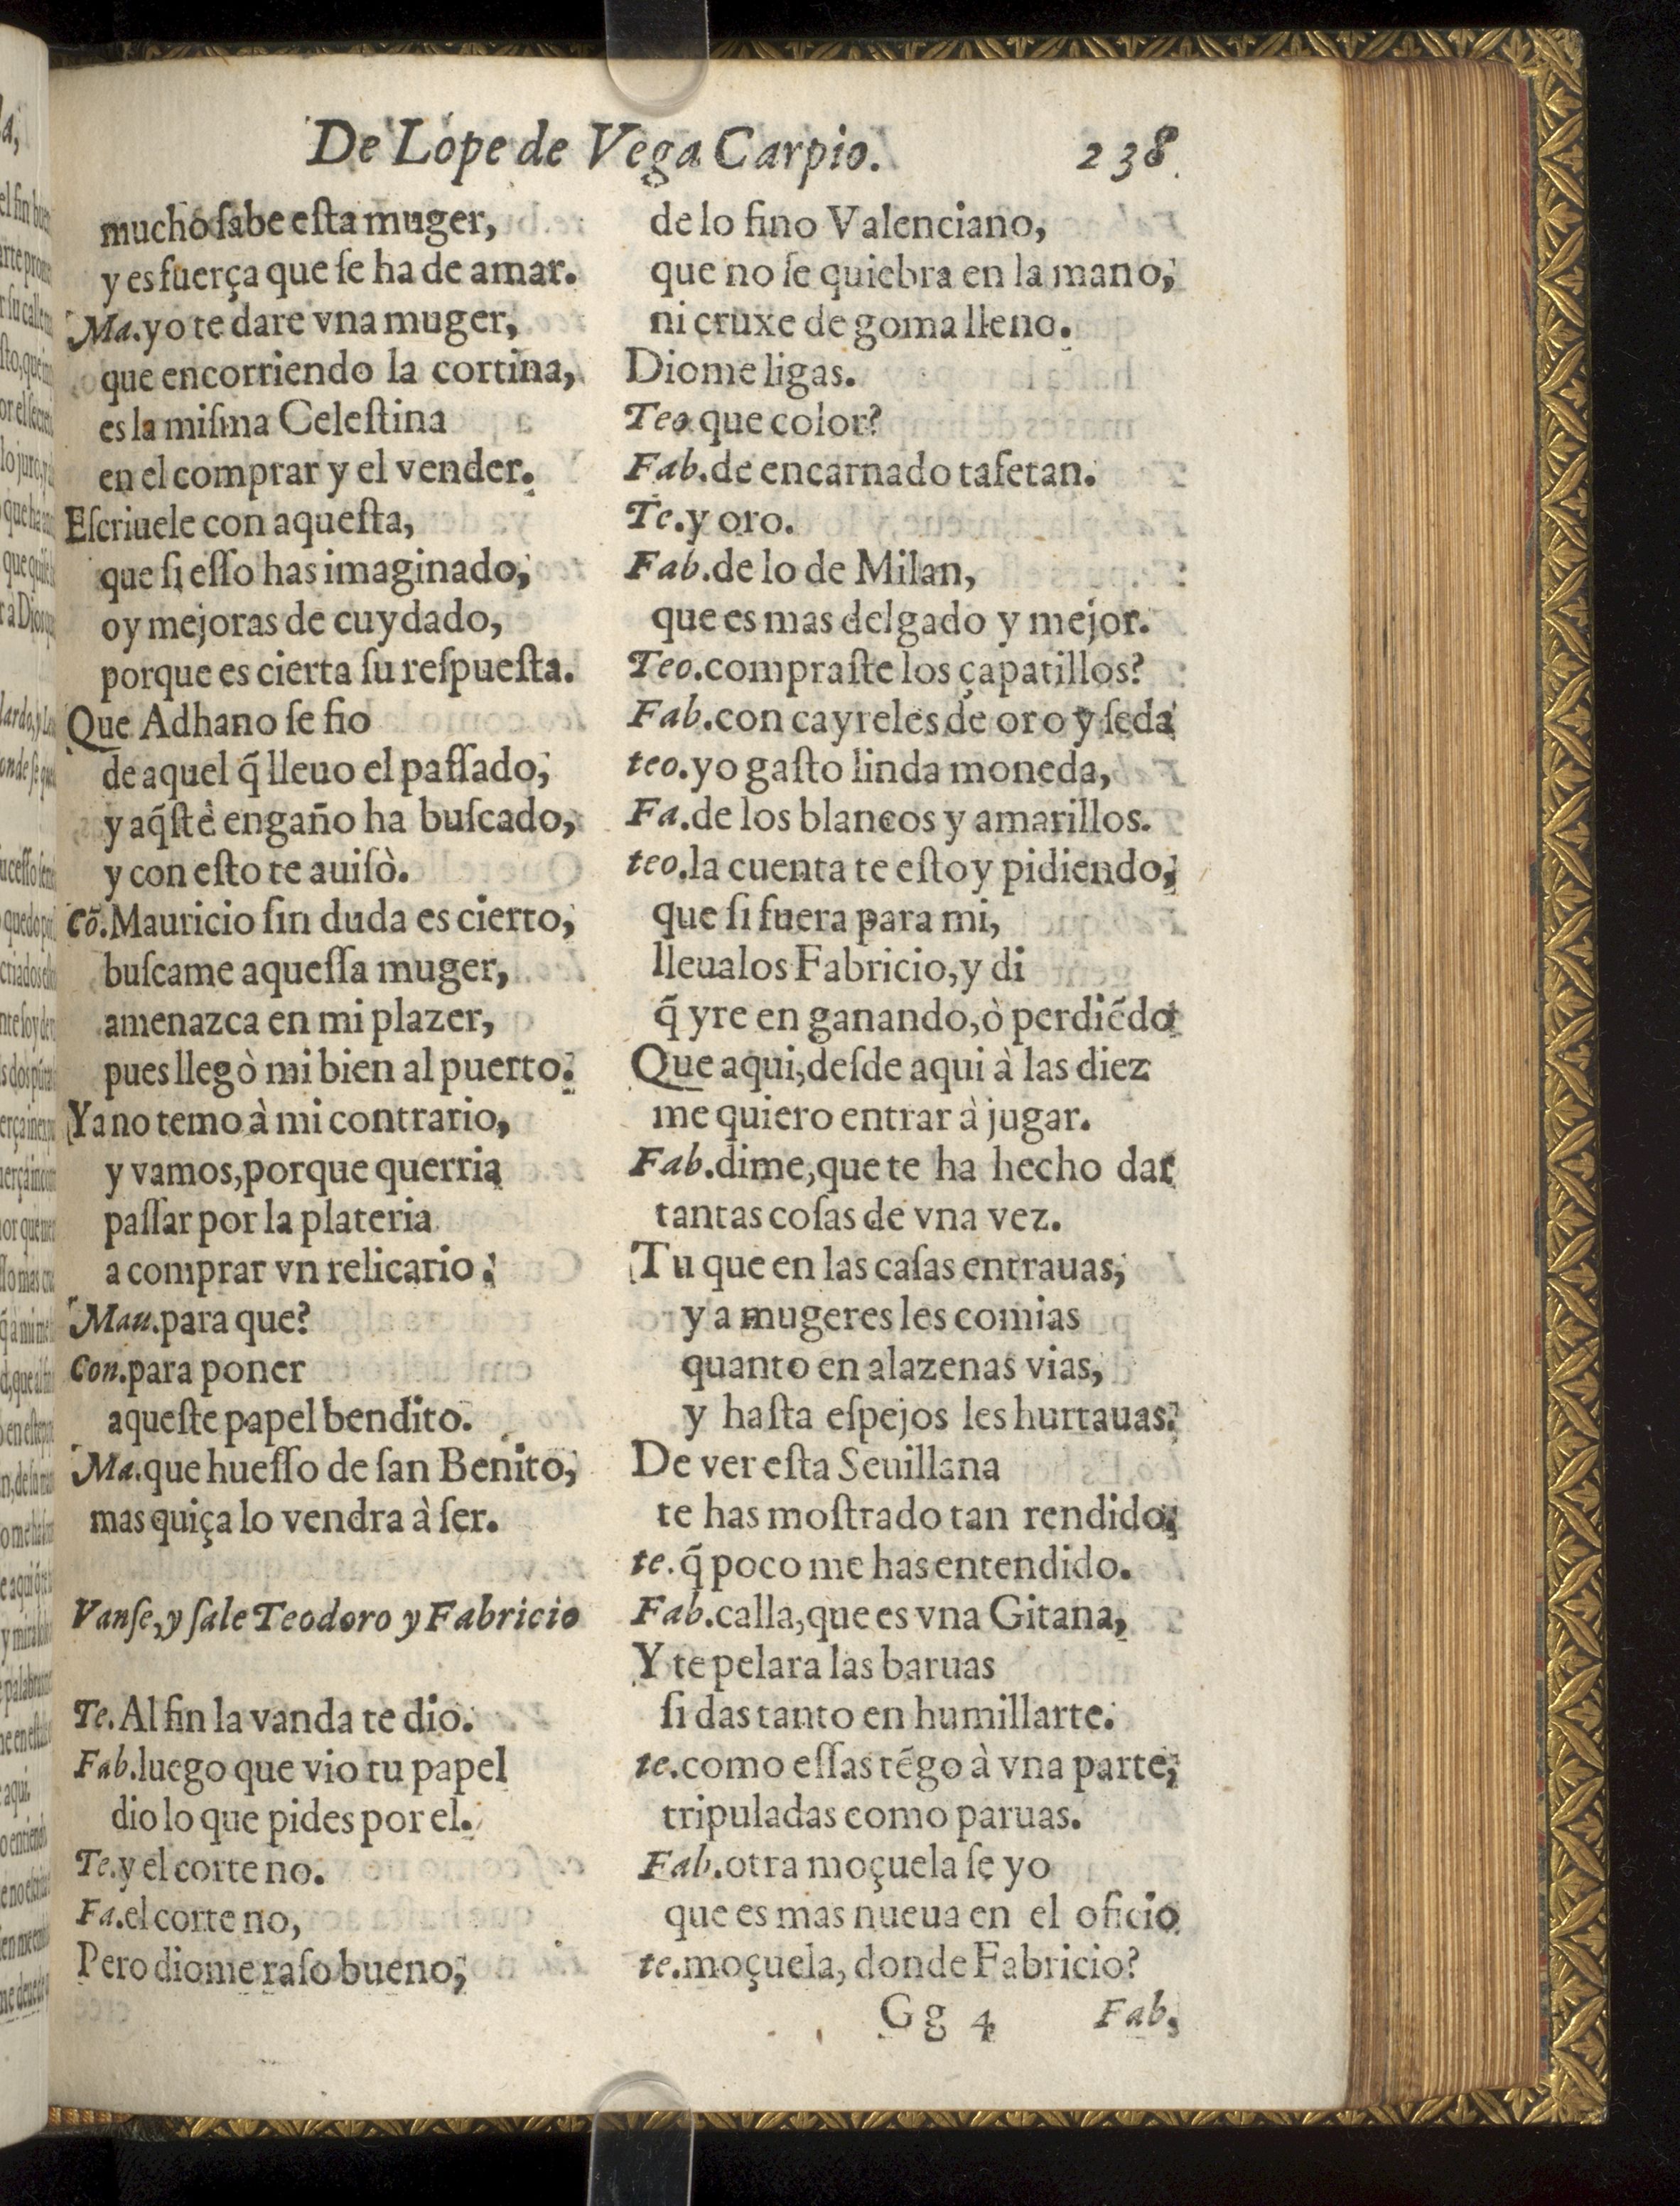 De Lope de Vega Carpio. 238
mucho ſabe eſta muger,
y es fuerça que ſe ha de amar.
Ma.yo te dare vna muger,
que encorriendo la cortina,
es la miſma Celeſtina
en el comprar y el vender.
Eſcriuele con aqueſta,
que ſi eſſo has imaginado,
oy mejoras de cuydado,
porque es cierta ſu reſpueſta.
Que Adhano ſe fio
de aquel q̃ lleuo el paſſado,
y aq̃ſtè engaño ha buſcado,
y con eſto te auiſò.
Cõ.Mauricio ſin duda es cierto,
buſcame aqueſſa muger,
amenazca en mi plazer,
pues llegò mi bien al puerto.
Ya no temo à mi contrario,
y vamos,porque querria
paſſar por la plateria
a comprar vn relicario.
Mau.para que?
Con.para poner
aqueſte papel bendito.
Ma.que hueſſo de ſan Benito,
mas quiça lo vendra à ſer.
Vanſe,y ſale Teodoro y Fabricio
Te.Al fin la vanda te dio.
Fab.luego que vio tu papel
dio lo que pides por el.
Te.y el corte no.
Fa.el corte no,
Pero diome raſo bueno,
de lo fino Valenciano,
que no ſe quiebra en la mano,
ni cruxe de goma lleno.
Diome ligas.
Teo.que color?
Fab.de encarnado tafetan.
Te.y oro.
Fab.de lo de Milan,
que es mas delgado y mejor.
Teo.compraſte los çapatillos?
Fab.con cayreles de oro y ſeda
teo.yo gaſto linda moneda,
Fa.de los blancos y amarillos.
teo.la cuenta te eſtoy pidiendo,
que ſi fuera para mi,
lleualos Fabricio,y di
q̃ yre en ganando,ò perdiẽdo
Que aqui,deſde aqui à las diez
me quiero entrar à jugar.
Fab.dime,que te ha hecho dar
tantas coſas de vna vez.
Tu que en las caſas entrauas,
y a mugeres les comias
quanto en alazenas vias,
y haſta eſpejos les hurtauas.
De ver eſta Seuillana
te has moſtrado tan rendido.
te.q̃ poco me has entendido.
Fab.calla,que es vna Gitana,
Y te pelara las baruas
ſi das tanto en humillarte.
te.como eſſas tẽgo à vna parte,
tripuladas como paruas.
Fab.otra moçuela ſe yo
que es mas nueua en el oficio
te.moçuela, donde Fabricio?
Gg 4 Fab,